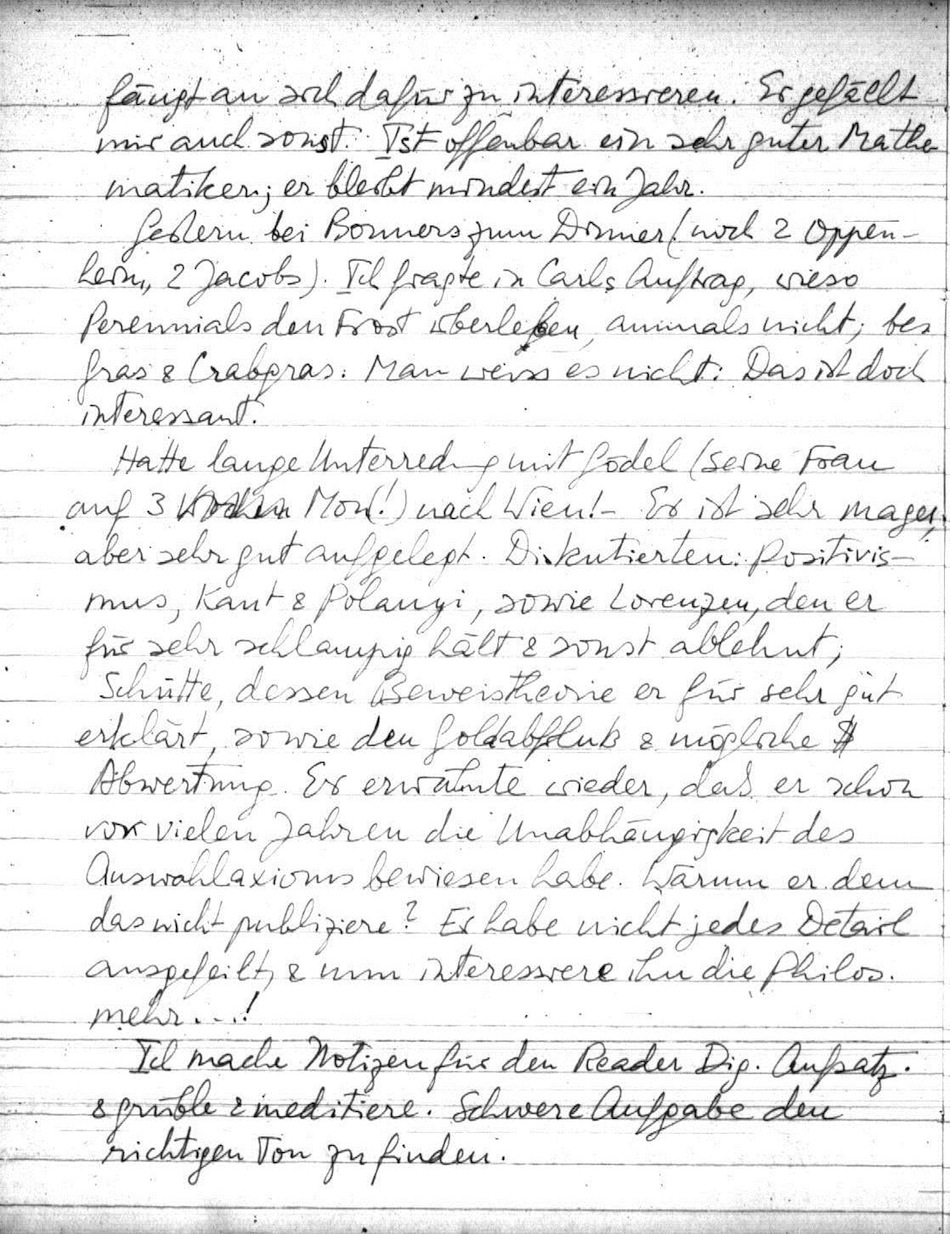 fängt an sich dafür zu interessieren. Er gefällt
mir auch sonst. Ist offenbar ein sehr guter Mathe
matiker; er bleibt mindest ein Jahr.
Gestern bei Bonners zum Dinner (noch 2 Oppen-
heim, 2 Jacobs). Ich fragte in Carls Auftrag, wieso
Perennials den Frost überleben, annuals nicht; bes
Gras & Crabgras. Man weiss es nicht: Das ist doch
interessant.
Hatte lange Unterredung mit Gödel (seine Frau
auf 3 Wochen Mon!) nach Wien! - Er ist sehr mager,
aber sehr gut aufgelegt. Diskutierten: Positivis-
mus, Kant & Polanyi, sowie Lorenzen, den er
für sehr schlampig hält & sonst ablehnt;
Schütte, dessen Beweistheorie er für sehr gut
erklärt, sowie den Goldabfluß & mögliche $
Abwertung. Er erwähnte wieder, daß er schon
vor vielen Jahren die Unabhängigkeit des
Auswahlaxioms bewiesen habe. Warum er denn
das nicht publiziere? Er habe nicht jedes Detail
ausgefeilt, & nun interessiere ihn die Philos.
mehr...!
Ich mache Notizen für den Reader Dig. Aufsatz.
& grüble & meditiere. Schwere Aufgabe den
richtigen Ton zu finden.